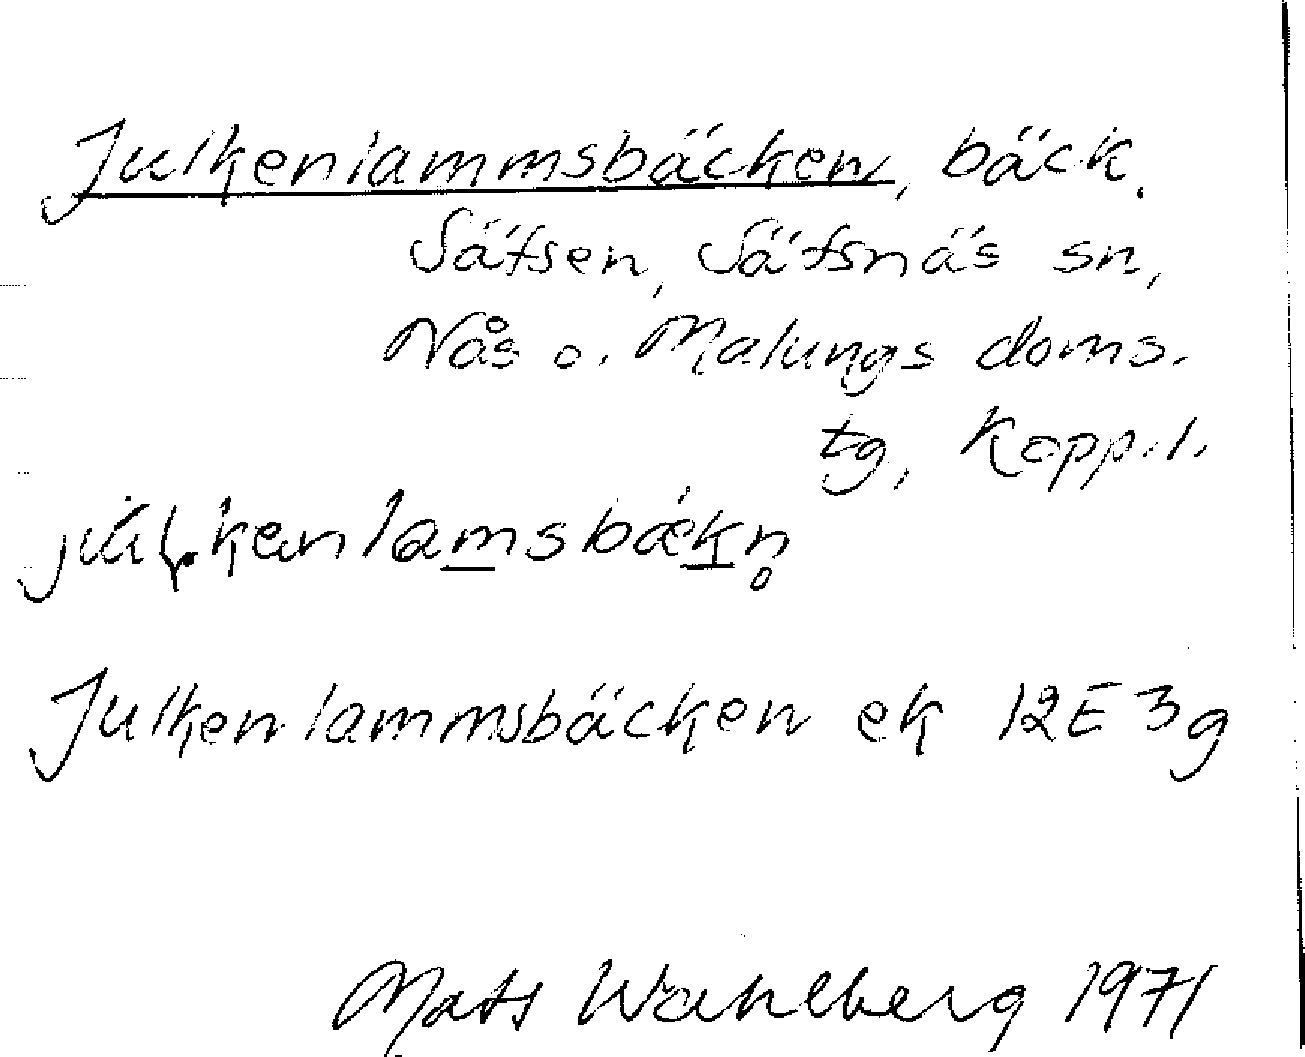 Julkenlammsbäcken, bäck.
Sätsen, Sätsnäs sn,
Nås o. Malungs doms.
tg, Kopp.l.
lamsbækn̥
Julkenlammsbäcken ek 12E3g
Mats Wahlberg 1971